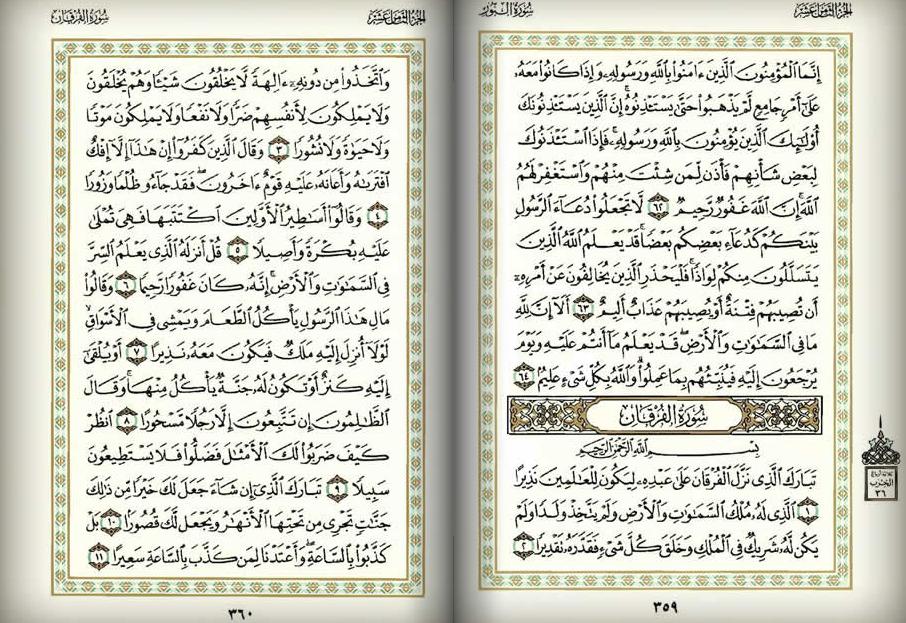 الجزء الثامن عشر
سورة النور
إِنَّمَا ٱلْمُؤْمِنُونَ ٱلَّذِينَ ءَامَنُوا۟ بِٱللَّهِ وَرَسُولِهِۦ وَإِذَا كَانُوا۟ مَعَهُۥ
عَلَىٰٓ أَمْرٍ جَامِعٍ لَّمْ يَذْهَبُوا۟ حَتَّىٰ يَسْتَـْٔذِنُوهُ ۚ إِنَّ ٱلَّذِينَ يَسْتَـْٔذِنُونَكَ
أُو۟لَـٰٓئِكَ ٱلَّذِينَ يُؤْمِنُونَ بِٱللَّهِ وَرَسُولِهِۦ ۚ فَإِذَا ٱسْتَـْٔذَنُوكَ
لِبَعْضِ شَأْنِهِمْ فَأْذَن لِّمَن شِئْتَ مِنْهُمْ وَٱسْتَغْفِرْ لَهُمُ
ٱللَّهَ ۚ إِنَّ ٱللَّهَ غَفُورٌ رَّحِيمٌ ٦٢ لَّا تَجْعَلُوا۟ دُعَآءَ ٱلرَّسُولِ
بَيْنَكُمْ كَدُعَآءِ بَعْضِكُم بَعْضًا ۚ قَدْ يَعْلَمُ ٱللَّهُ ٱلَّذِينَ
يَتَسَلَّلُونَ مِنكُمْ لِوَاذًا ۚ فَلْيَحْذَرِ ٱلَّذِينَ يُخَالِفُونَ عَنْ أَمْرِهِۦٓ
أَن تُصِيبَهُمْ فِتْنَةٌ أَوْ يُصِيبَهُمْ عَذَابٌ أَلِيمٌ ٦٣ أَلَآ إِنَّ لِلَّهِ
مَا فِى ٱلسَّمَـٰوَٰتِ وَٱلْأَرْضِ ۖ قَدْ يَعْلَمُ مَآ أَنتُمْ عَلَيْهِ وَيَوْمَ
يُرْجَعُونَ إِلَيْهِ فَيُنَبِّئُهُم بِمَا عَمِلُوا۟ ۗ وَٱللَّهُ بِكُلِّ شَىْءٍ عَلِيمٌۢ ٦٤
سُورَةُ الفُرْقَانِ
بِسْمِ ٱللَّهِ ٱلرَّحْمَـٰنِ ٱلرَّحِيمِ
تَبَارَكَ ٱلَّذِى نَزَّلَ ٱلْفُرْقَانَ عَلَىٰ عَبْدِهِۦ لِيَكُونَ لِلْعَـٰلَمِينَ نَذِيرًا
١ ٱلَّذِى لَهُۥ مُلْكُ ٱلسَّمَـٰوَٰتِ وَٱلْأَرْضِ وَلَمْ يَتَّخِذْ وَلَدًا وَلَمْ
يَكُن لَّهُۥ شَرِيكٌ فِى ٱلْمُلْكِ وَخَلَقَ كُلَّ شَىْءٍ فَقَدَّرَهُۥ تَقْدِيرًا ٢
ثلاثة أرباع
الحزب
٣٦
٣٥٩
الجزء الثامن عشر
سورة الفرقان
وَٱتَّخَذُوا۟ مِن دُونِهِۦٓ ءَالِهَةً لَّا يَخْلُقُونَ شَيْـًٔا وَهُمْ يُخْلَقُونَ
وَلَا يَمْلِكُونَ لِأَنفُسِهِمْ ضَرًّا وَلَا نَفْعًا وَلَا يَمْلِكُونَ مَوْتًا
وَلَا حَيَوٰةً وَلَا نُشُورًا ٣ وَقَالَ ٱلَّذِينَ كَفَرُوٓا۟ إِنْ هَـٰذَآ إِلَّآ إِفْكٌ
ٱفْتَرَىٰهُ وَأَعَانَهُۥ عَلَيْهِ قَوْمٌ ءَاخَرُونَ ۖ فَقَدْ جَآءُو ظُلْمًا وَزُورًا
٤ وَقَالُوٓا۟ أَسَـٰطِيرُ ٱلْأَوَّلِينَ ٱكْتَتَبَهَا فَهِىَ تُمْلَىٰ
عَلَيْهِ بُكْرَةً وَأَصِيلًا ٥ قُلْ أَنزَلَهُ ٱلَّذِى يَعْلَمُ ٱلسِّرَّ
فِى ٱلسَّمَـٰوَٰتِ وَٱلْأَرْضِ ۚ إِنَّهُۥ كَانَ غَفُورًا رَّحِيمًا ٦ وَقَالُوا۟
مَالِ هَـٰذَا ٱلرَّسُولِ يَأْكُلُ ٱلطَّعَامَ وَيَمْشِى فِى ٱلْأَسْوَاقِ ۙ
لَوْلَآ أُنزِلَ إِلَيْهِ مَلَكٌ فَيَكُونَ مَعَهُۥ نَذِيرًا ٧ أَوْ يُلْقَىٰٓ
إِلَيْهِ كَنزٌ أَوْ تَكُونُ لَهُۥ جَنَّةٌ يَأْكُلُ مِنْهَا ۚ وَقَالَ
ٱلظَّـٰلِمُونَ إِن تَتَّبِعُونَ إِلَّا رَجُلًا مَّسْحُورًا ٨ ٱنظُرْ
كَيْفَ ضَرَبُوا۟ لَكَ ٱلْأَمْثَـٰلَ فَضَلُّوا۟ فَلَا يَسْتَطِيعُونَ
سَبِيلًا ٩ تَبَارَكَ ٱلَّذِىٓ إِن شَآءَ جَعَلَ لَكَ خَيْرًا مِّن ذَٰلِكَ
جَنَّـٰتٍ تَجْرِى مِن تَحْتِهَا ٱلْأَنْهَـٰرُ وَيَجْعَل لَّكَ قُصُورًۢا ١٠ بَلْ
كَذَّبُوا۟ بِٱلسَّاعَةِ ۖ وَأَعْتَدْنَا لِمَن كَذَّبَ بِٱلسَّاعَةِ سَعِيرًا ١١
٣٦٠